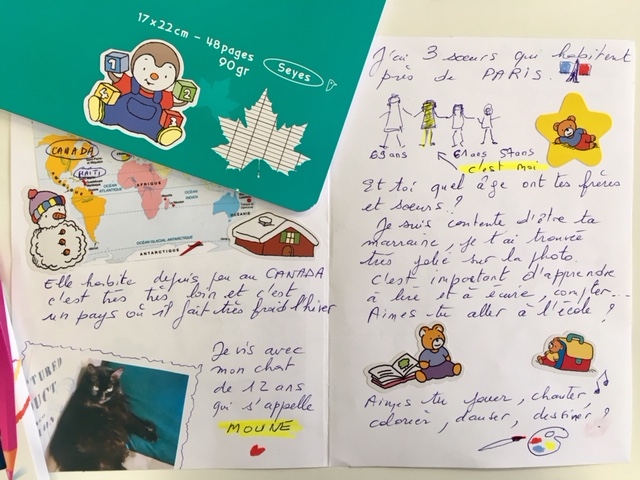 17x22cm - 48 pages
90gr
Seyes
1
2
3
CANADA
HAITI
OCÉAN
ATLANTIQUE
AFRIQUE
OCÉAN
INDIEN
OCÉANIE
OCÉAN GLACIAL ANTARCTIQUE
ANTARCTIQUE
Elle habite depuis peu au CANADA
c'est très très loin et c'est
un pays où il fait très froid l'hiver
Je vis avec
mon chat
de 12 ans
qui s'appelle
MOUNE
J'ai 3 sœurs qui habitent
près de PARIS.
63 ans 61 ans 57 ans
c'est moi
Et toi quel âge ont tes frères
et sœurs ?
Je suis contente d'être ta
marraine, je t'ai trouvée
très jolie sur la photo.
C'est important d'apprendre
à lire et à écrire, compter...
Aimes-tu aller à l'école ?
Aimes-tu jouer, chanter,
colorier, danser, dessiner ?